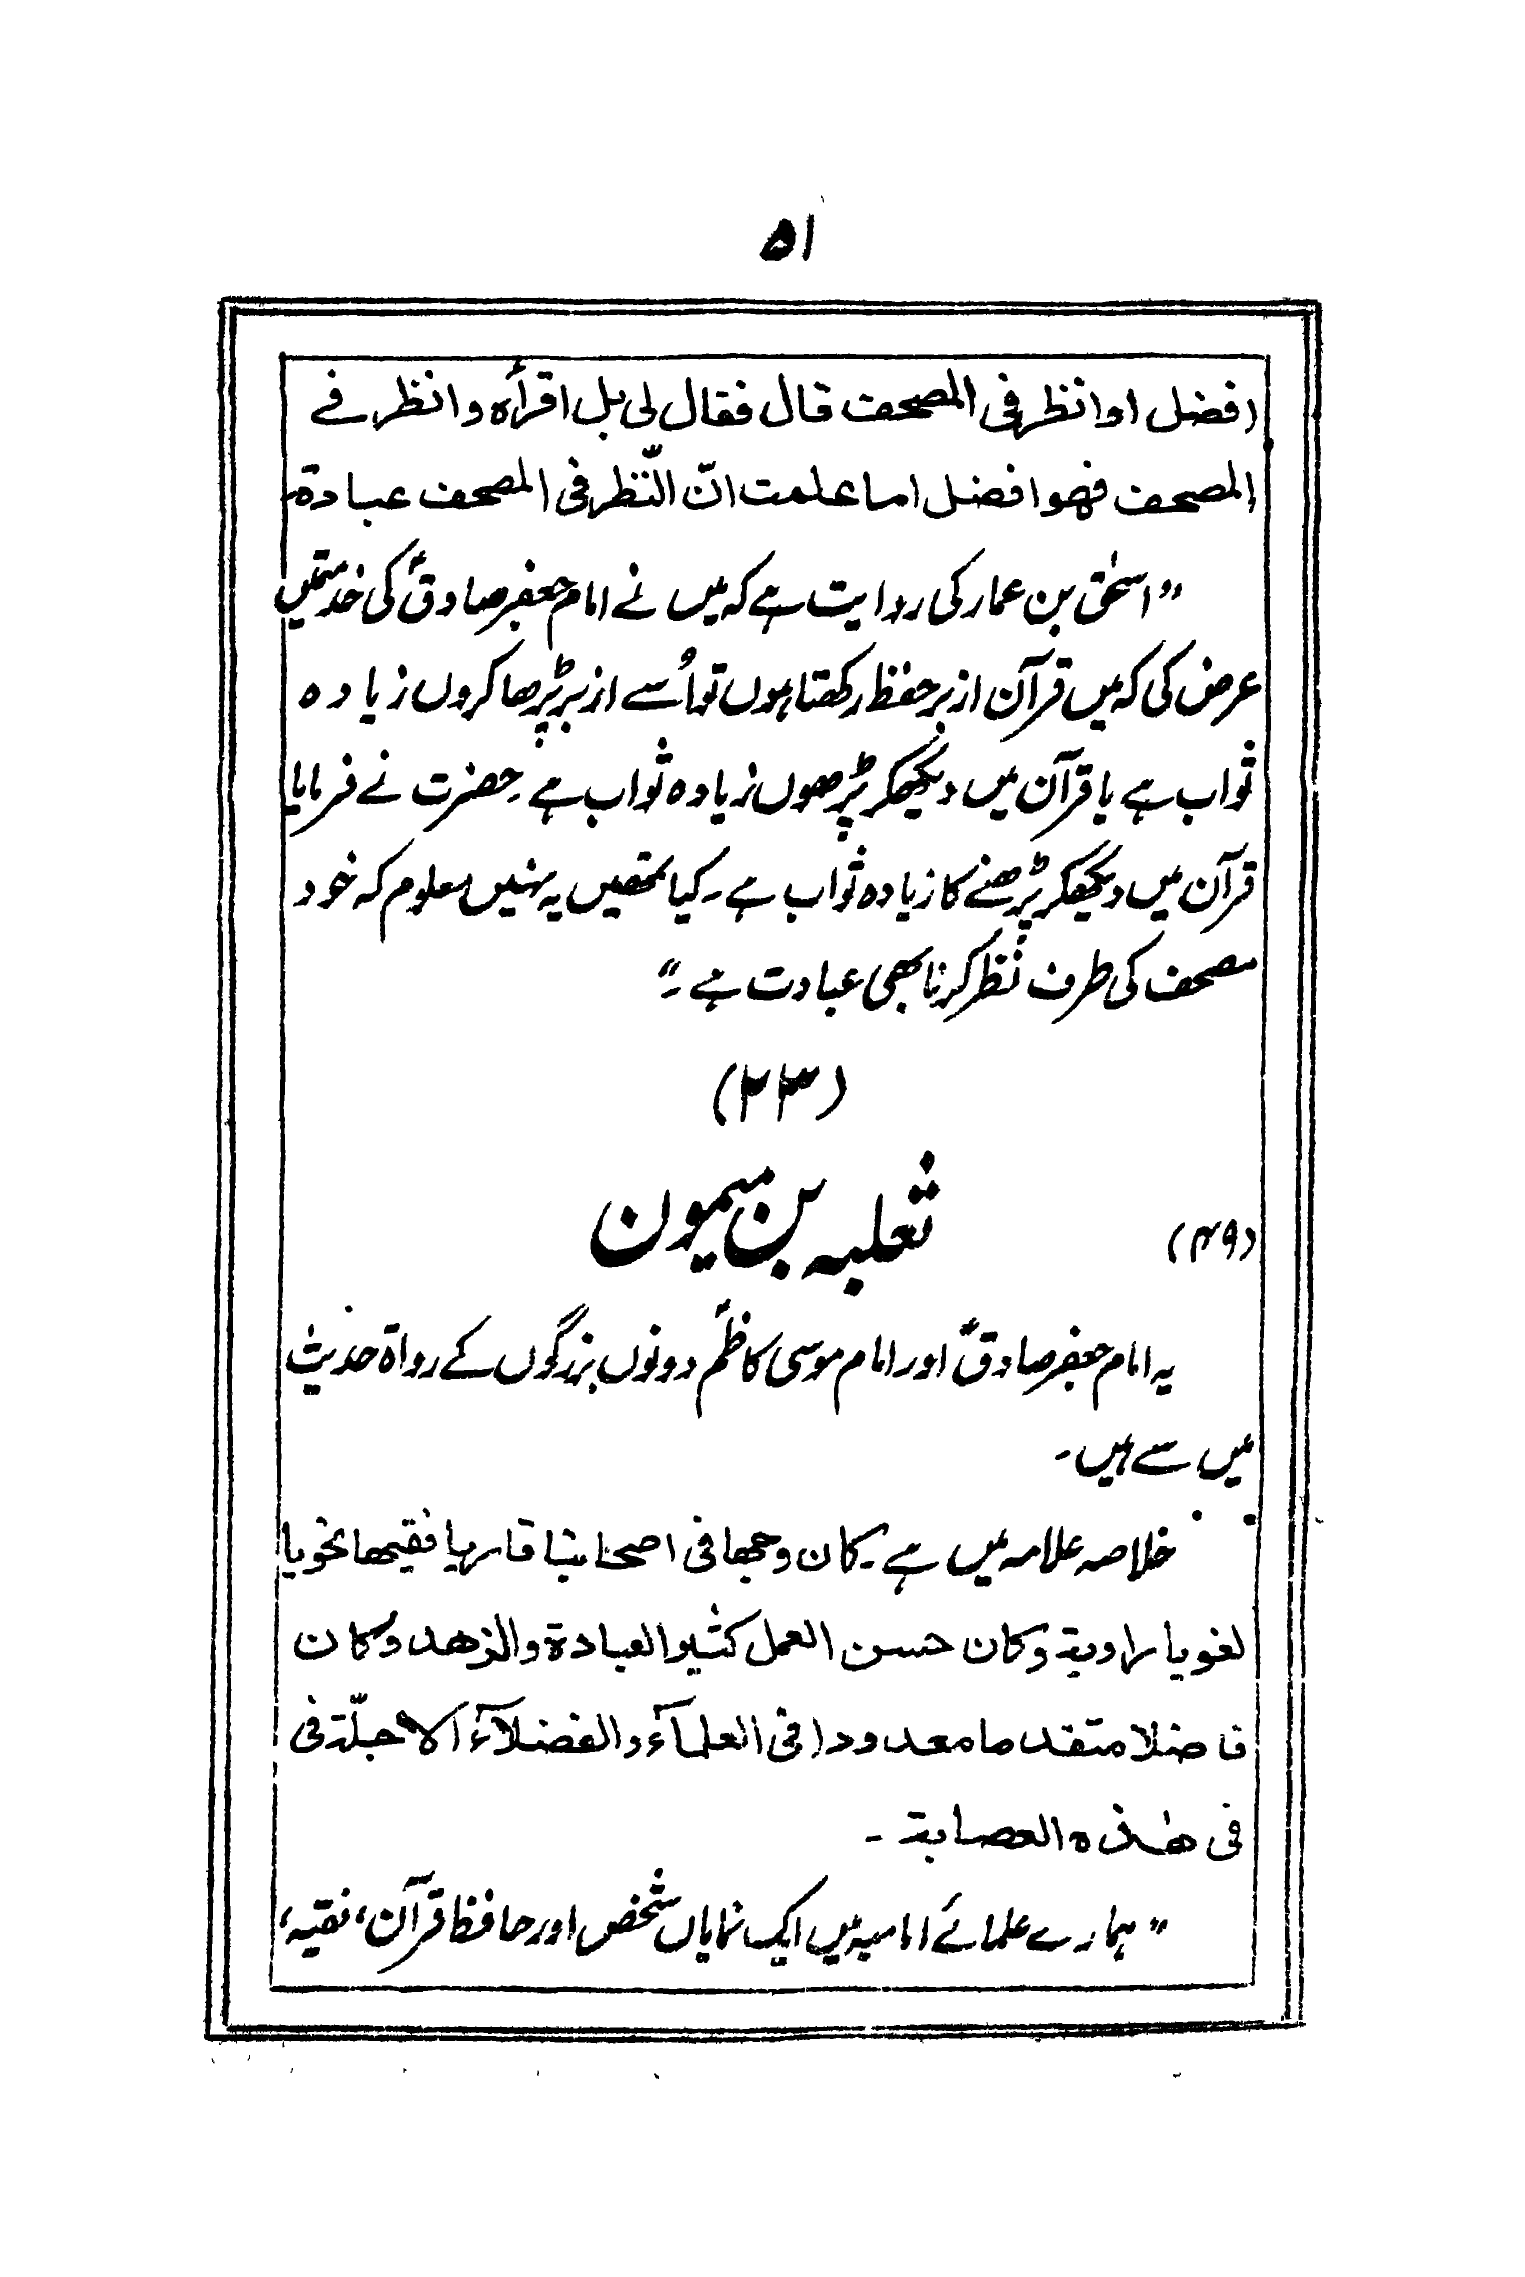 ۵۱
افضل اوانظر فی المصحف قال فقال لی بل اقرأہ وانظر فے
المصحف فھوا فضل اما علمت انّ النّظر فی المصحف عبادة
”اسحٰق بن عمار کی روایت ہے کہ میں نے امام جعفر صادقؑ کی خدمتمیں
عرض کی کہ میں قرآن ازبر حفظ رکھتا ہوں تو اُسے ازبر پڑھا کروں زیادہ
ثواب ہے یا قرآن میں دیکھکر پڑھوں زیادہ ثواب ہے۔ حضرت نے فرمایا
قرآن میں دیکھکر پڑھنے کا زیادہ ثواب ہے۔ کیا تمھیں یہ نہیں معلوم کہ خود
مصحف کی طرف نظر کرنا بھی عبادت ہے۔“
(۲۳)
ثعلبہ بن میمون
(۴۹)
یہ امام جعفر صادقؑ اور امام موسی کاظمؑ دونوں بزرگوں کے رواة حدیث
میں سے ہیں۔
خلاصہ علامہ میں ہے۔ کان وجھا فی اصحابنا قاریا فقیھا نحویا
لغویا راویة وکان حسن العمل کثیر العبادة والزھد وکان
فاضلا متقدما معدودا فی العلمآء والفضلآء الاجلّة فی
فی ھٰذہ العصابة۔
”ہمارے علمائے امامیہ میں ایک نمایاں شخص اور حافظ قرآن، فقیہ،